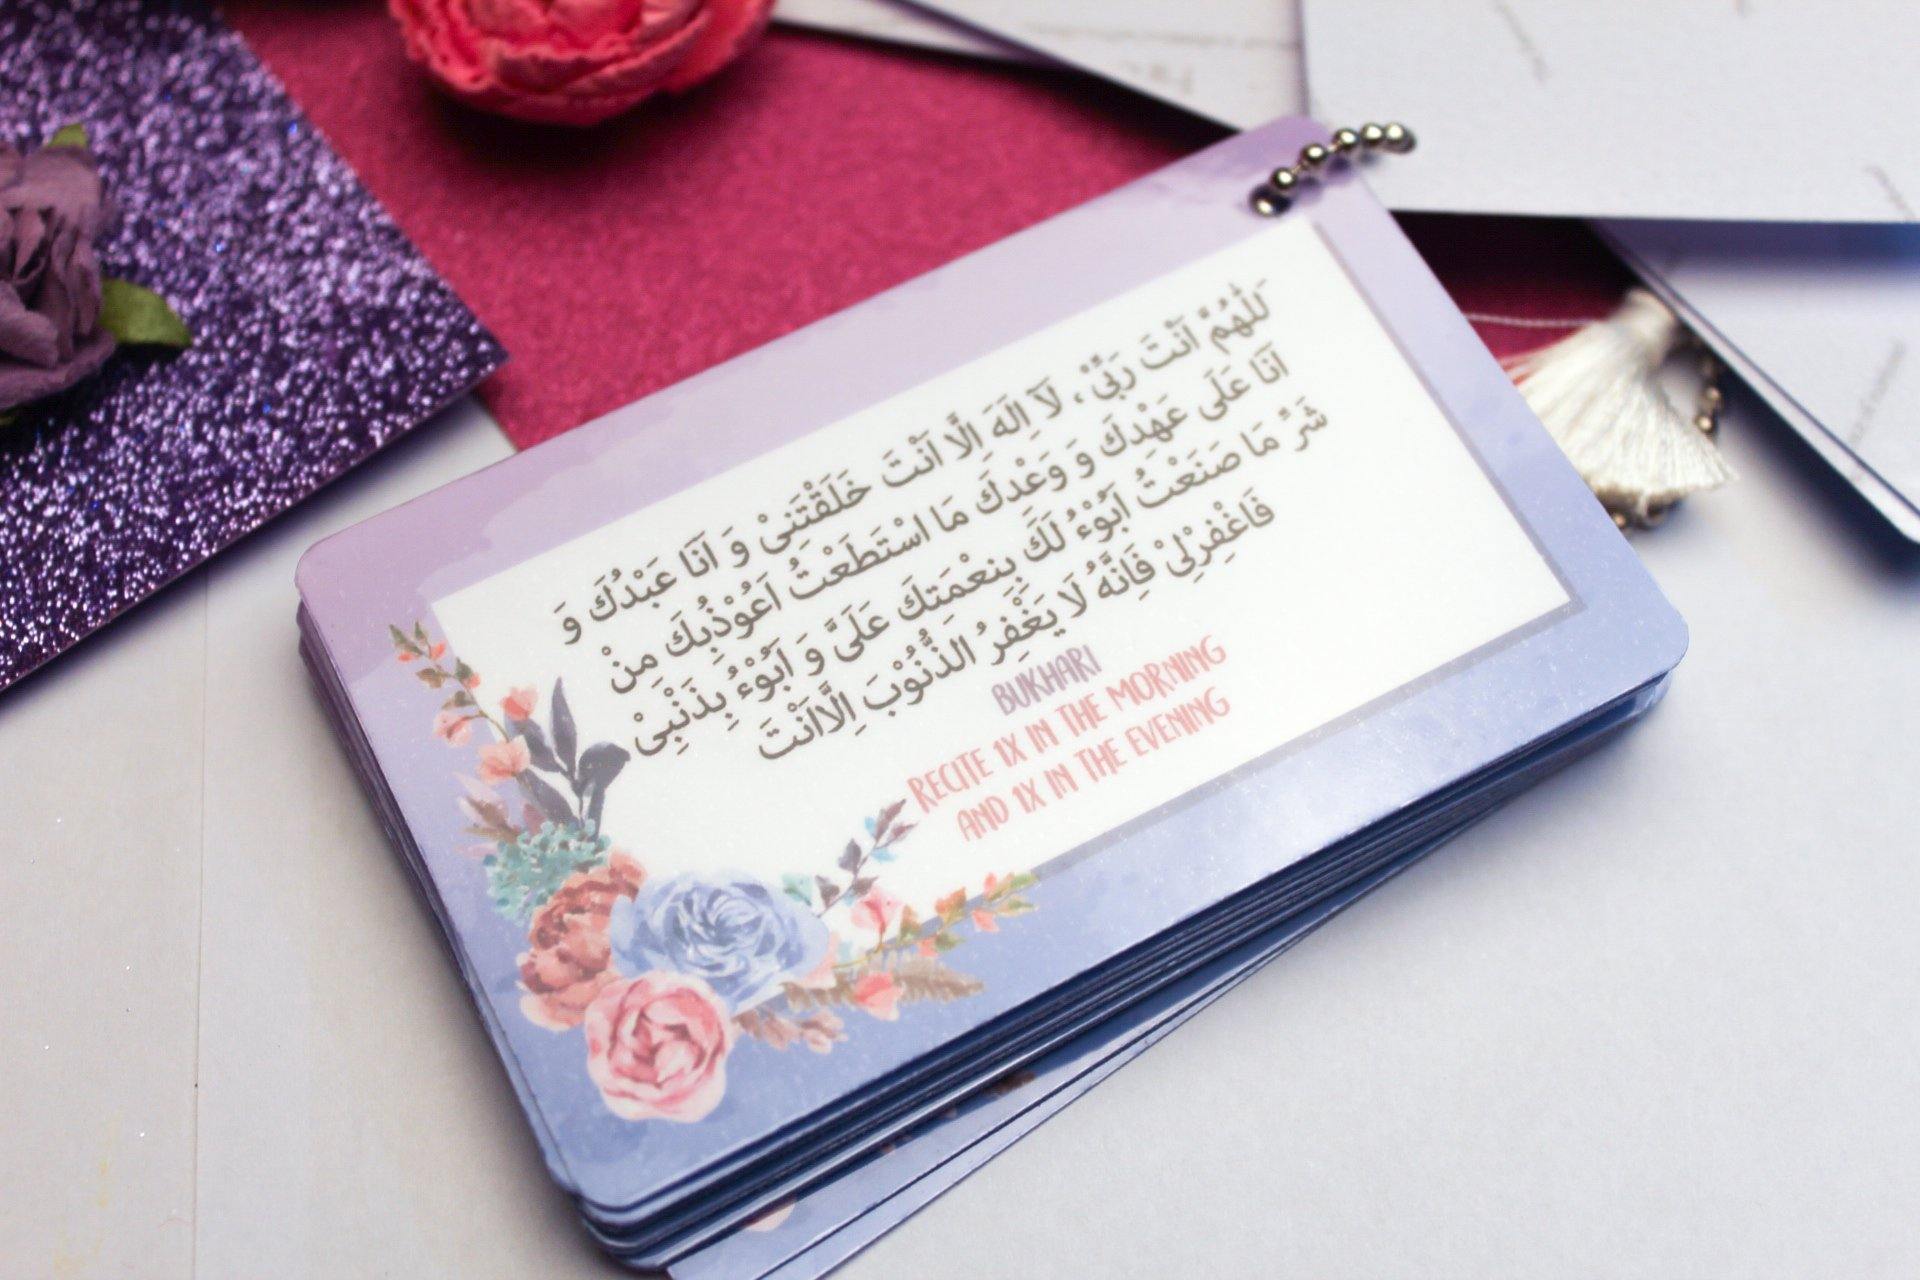 َللّٰهُمَّ اَنْتَ رَبِّىْ، لَآ اِلَهَ اِلَّا اَنْتَ خَلَقْتَنِىْ وَ اَنَا عَبْدُكَ وَ
اَنَا عَلَى عَهْدِكَ وَ وَعْدِكَ مَا اسْتَطَعْتُ اَعُوْذُبِكَ مِنْ
شَرِّ مَا صَنَعْتُ اَبُوْءُ لَكَ بِنِعْمَتِكَ عَلَىَّ وَ اَبُوْءُ بِذَنْبِىْ
فَاغْفِرْلِىْ فَاِنَّهُ لَا يَغْفِرُ الذُّنُوْبَ اِلَّااَنْتَ
BUKHARI
RECITE 1X IN THE MORNING
AND 1X IN THE EVENING